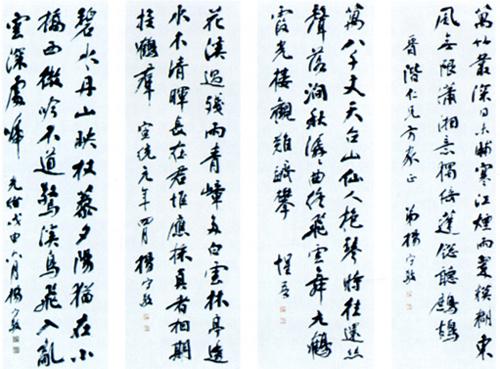 萬竹叢深日未晡寒江煙雨更模糊東
風無限瀟湘意獨倚蓬窗聽鷓鴣
晉階仁兄方家正 弟楊守敬
萬八千丈天台山仙人抱琴時往還絲
聲落澗秋瀑曲 飛雪舞元鶴
霞光樓觀難躋攀 惺吾
花溪過殘雨青嶂多白雲林亭
水木清暉長在君唯應採真者相期
接鶴群 宣統元年四月 楊守敬
碧水丹山映杖藜夕陽猶在小
橋西微吟不道驚溪鳥飛入亂
雲深處啼 光緒戊申八月楊守敬